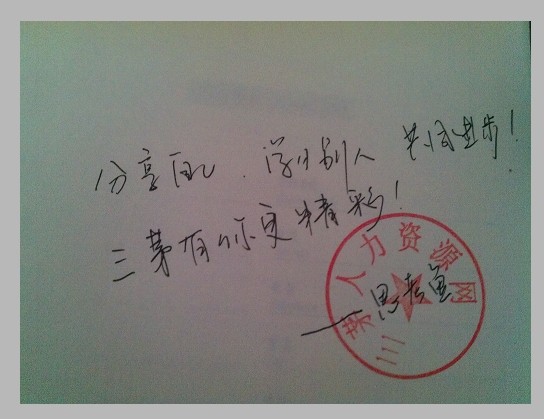 分享自己、学习别人 共同进步!
三茅有你更精彩!
——思考鱼
三茅人力资源网